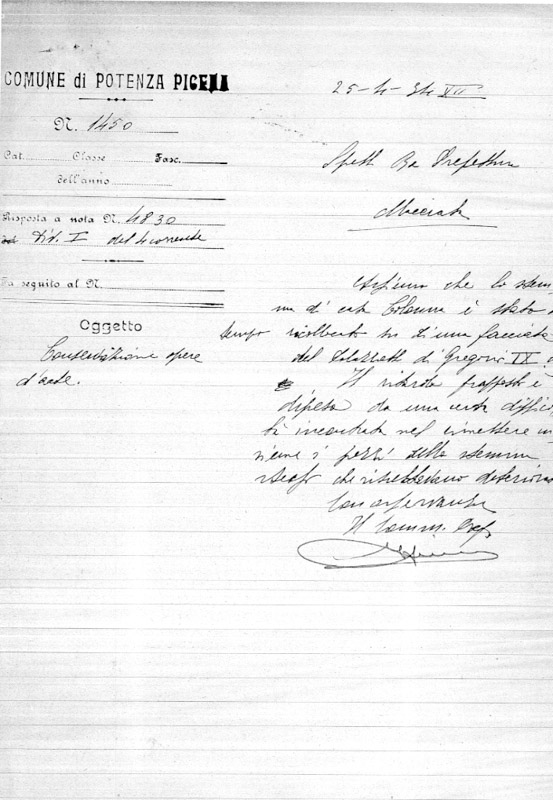 COMUNE di POTENZA PICENA
N. 1450
Cat. Classe Fasc.
dell'anno
Risposta a nota N. 4830
Div. I del 4 corrente
Fa seguito al N.
Oggetto
Conservazione opere
d'arte.
25-4-34 XII
Spett Ra Prefettura
Macerata
che lo stem
ma di Colonna è stato
tempo ricollocato su di una facciata
del di Gregorio IX
Il ritardo frapposto è
dipeso da una certa difficol
tà incontrata nel rimettere in
sieme i pezzi dello stemma
stesso che
Con osservanza
Il Comm. Pref